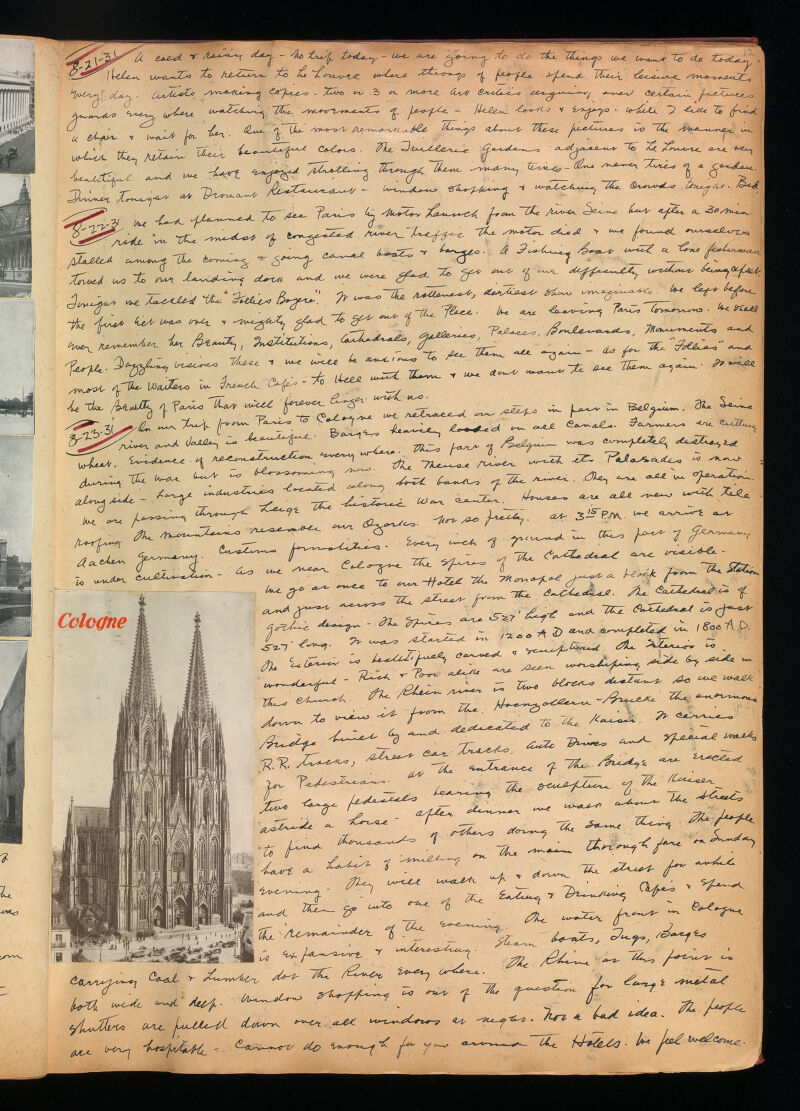 8-21-31 A cold & rainy day - No trip today - we are going to do the things we want to do today.
Helen wants to return to Le Louvre where throngs of people spend their leisure moments
every day. Artists making copies - two or 3 or more Art Critics arguing over certain pictures
guards every where watching the movements of people - Helen looks & enjoys - while I like to find
a chair & wait for her. One of the most remarkable things about these pictures is the manner in
which they retain their beautiful colors. The Tuillerie Gardens adjacent to Le Louvre are very
beautiful and we have enjoyed strolling through them many times - One never tires of a garden.
Dinner tonight at Drouant Restaurant - window shopping & watching the crowds tonight. Bed
8-22-31 We had planned to see Paris by Motor Launch from the river Seine but after a 30 min
ride in the midst of congested river traffic the motor died & we found ourselves
stalled among the coming & going canal boats & barges. A Fishing Boat with a lone fisherman
towed us to our landing dock and we were glad to get out of our difficulty without being upset.
Tonight we tackled the "Follies Bogere". It was the rottenest, dirtiest show imaginable. We left before
the first Act was over & mighty glad to get out of the Place. We are leaving Paris tomorrow. We shall
ever remember her Beauty, Institutions, Cathedrals, Galleries, Palaces, Boulevards, Monuments and
People. Dazzling visions these & we will be anxious to see them all again - as for the "Follies" and
most of the Waiters in French Cafes - to Hell with them & we dont want to see them again. It will
be the Beauty of Paris that will forever linger with us.
8-23-31 On our trip from Paris to Cologne we retraced our steps in part in Belgium. The Seine
river and Valley is beautiful. Barges heavily loaded on all canals. Farmers are cutting
wheat. Evidence of reconstruction every where. This part of Belgium was completely destroyed
during the war but is blossoming now. The Meuse river with its Palasades is now
along side - Large industries located along both banks of the river. They are all in operation.
We are passing through Leige the historic War center. Houses are all new with tile
roofing The mountains resemble our Ozarks. Not so pretty. at 3 15 P.M. we arrive at
Aachen Germany. Customs formalities - Every inch of ground in this part of Germany
is under cultivation - As we near Cologne the spires of the Cathedral are visible -
We go at once to our Hotel the Monopol just a block from the Station
and just across the street from the Cathedral. The Cathedral is of
Gothic design - The Spires are 527' high and the Cathedral is just
527' long. It was started in 1200 A.D and completed in 1800 A.D.
The Exterior is beautifuly carved & sculptured The Interior is
wonderful - Rich & Poor alike are seen worshiping side by side in
this Church. The Rhein river is two blocks distant so we walk
down to view it from the Hoenzollern-Brucke the enormous
Bridge built by and dedicated to the Kaiser. It carries
R.R. tracks, street car tracks, Auto Drives and special walks
for Pedestrians. At the entrance of the Bridge are erected
two large pedestals bearing the sculpture of the Kaiser
astride a horse - after dinner we walk about the streets
to find thousands of others doing the same thing. The people
have a habit of milling on the main thorough fare on Sunday
evening. They will walk up & down the street for awhile
and then go into one of the Eating & Drinking Cafes & spend
the remainder of the evening. The water front in Cologne
is expansive & interesting. Steam boats, Tugs, Barges
carrying Coal & Lumber dot the River every where. The Rhine at this point is
both wide and deep. Window shopping is out of the question for large metal
shutters are pulled down over all windows at night. Not a bad idea. The people
are very hospitable - Cannot do enough for you around the Hotels. We feel welcome.
Cologne